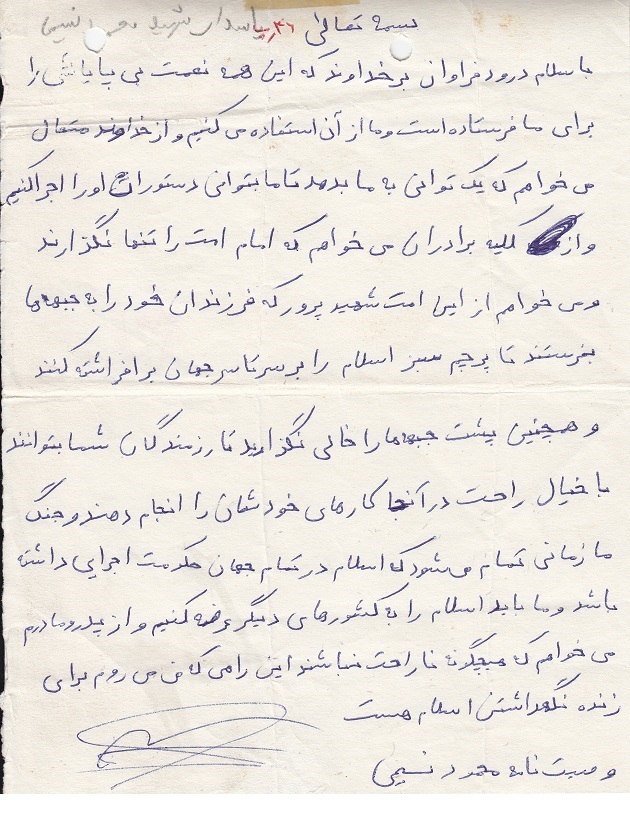 بسمه تعالی ۴۶ پاسدار شهید محمود نسیمی
با سلام درود فراوان بر خداوند که این همه نعمت بی پایانش را
برای ما فرستاده است و ما از آن استفاده می کنیم و از خداوند متعال
می خواهم که یک توانی به ما بدهد تا ما بتوانی دستوران او را اجرا کنیم
و از کلیه برادران می خواهم که امام امت را تنها نگزارند
و می خواهم از این امت شهید پرور که فرزندان خود را به جبهه ها
بفرستند تا پرچم سبز اسلام را بر سرتاسر جهان برافراشته کنند
و همچنین پشت جبهه ها را خالی نگزارید تا رزمندگان شما بتوانند
با خیال راحت در آنجا کارهای خودشان را انجام دهند و جنگ
ما زمانی تمام می شود که اسلام در تمام جهان حکومت اجرایی داشته
باشد و ما باید اسلام را به کشورهای دیگر عرضه کنیم و از پدر و مادرم
می خواهم که هیچگونه ناراحت نباشند این راهی که من می روم برای
زنده نگهداشتن اسلام هست
وصیت نامه محمود نسیمی